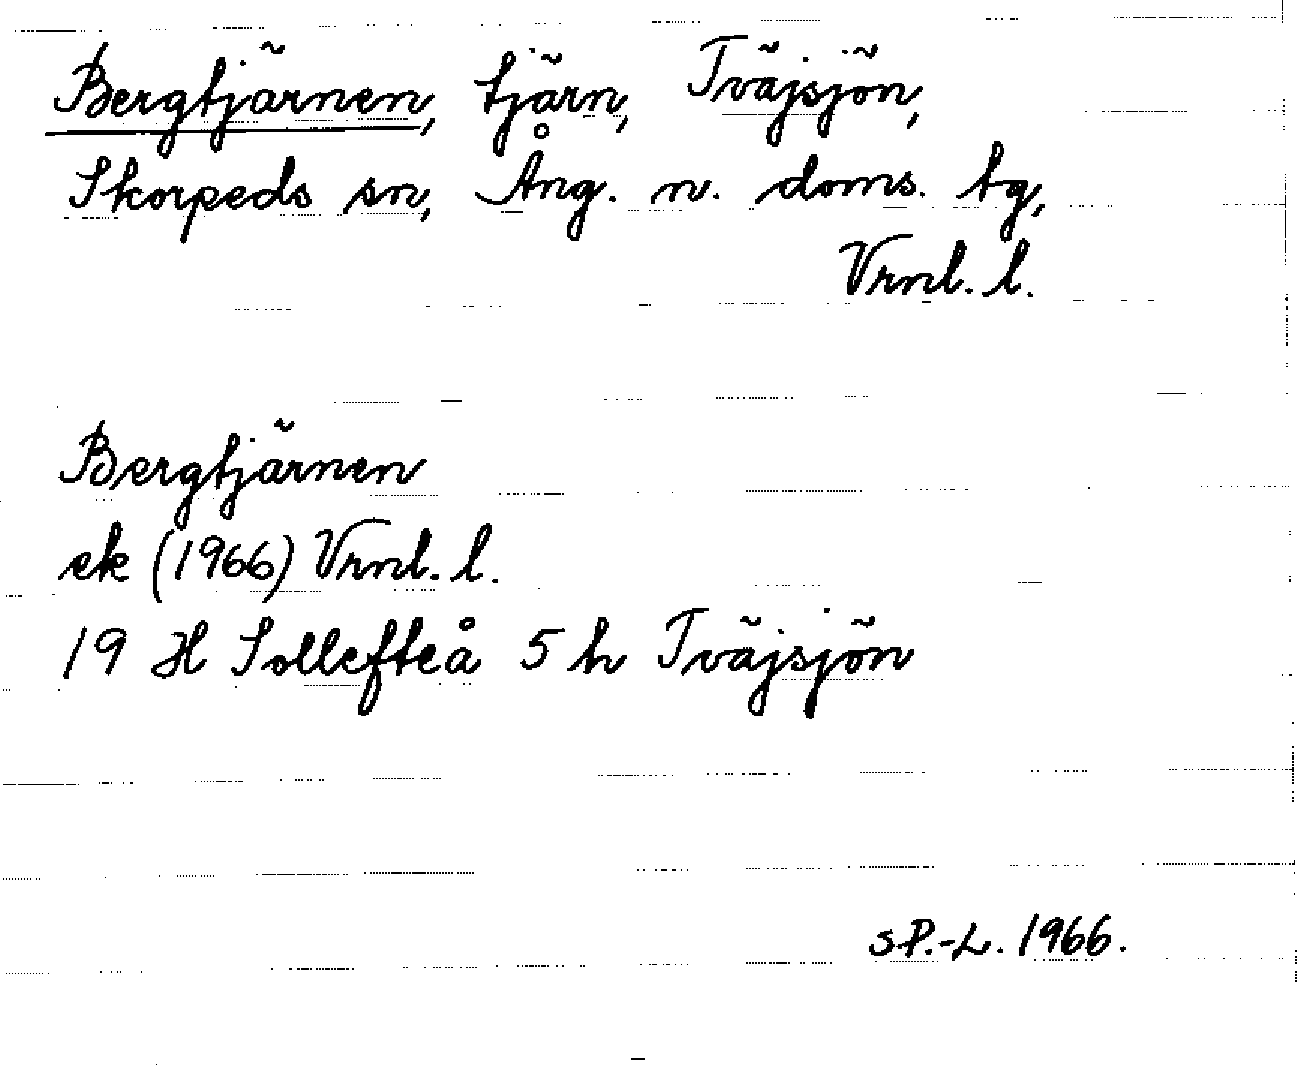 Bergtjärnen, tjärn, Tväjsjön,
Skorpeds sn, Ång. n. doms. tg,
Vrnl. l.
Bergtjärnen
ek (1966) Vrnl. l.
19 H Sollefteå 5 h Tväjsjön
sP.-L. 1966.